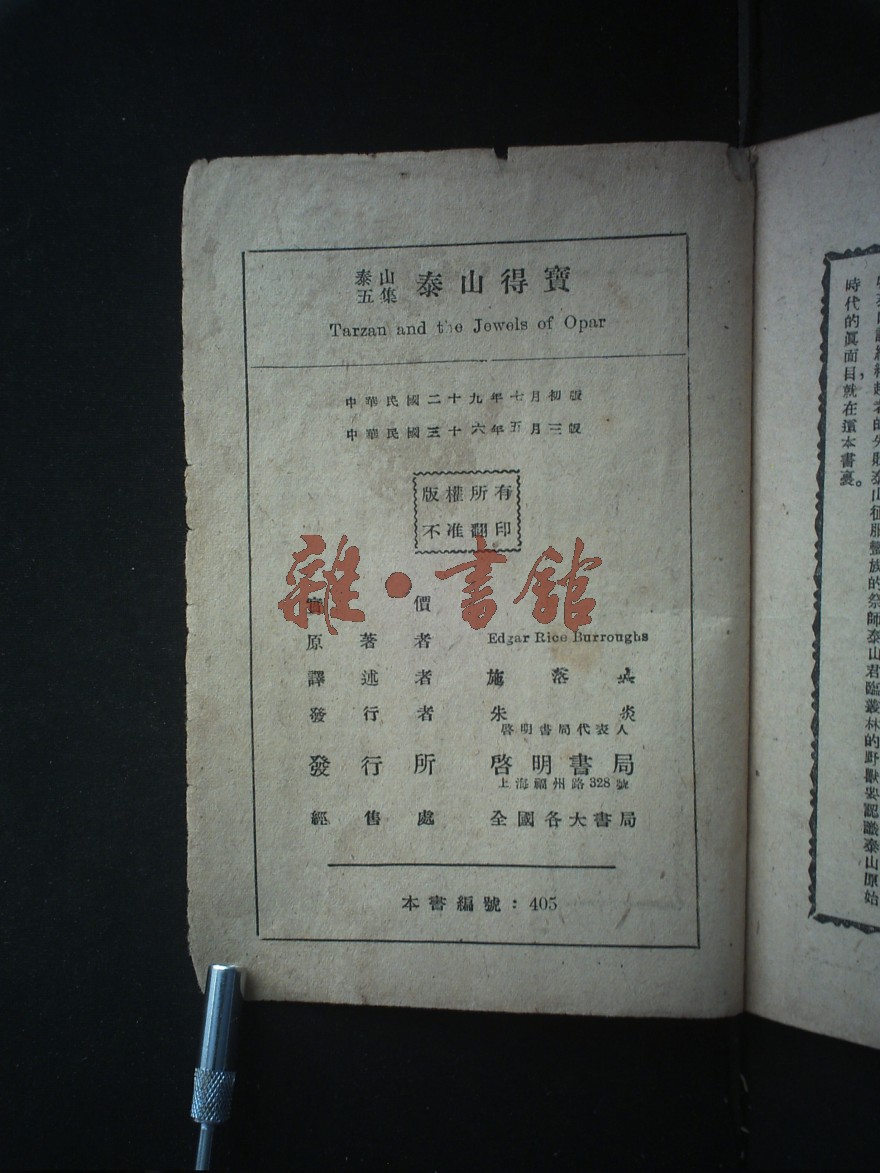 泰山
五集
泰山得寶
Tarzan and the Jewels of Opar
中華民國二十九年七月初版
中華民國三十六年五月三版
版權所有
不准翻印
雜·書館
實價
原著者 Edgar Rice Burroughs
譯述者 施落英
發行者 朱炎
啓明書局代表人
發行所 啓明書局
上海福州路328號
經售處 全國各大書局
本書編號：405
泰山君臨叢林的野獸要認識泰山原始
時代的眞面目，就在這本書裏。